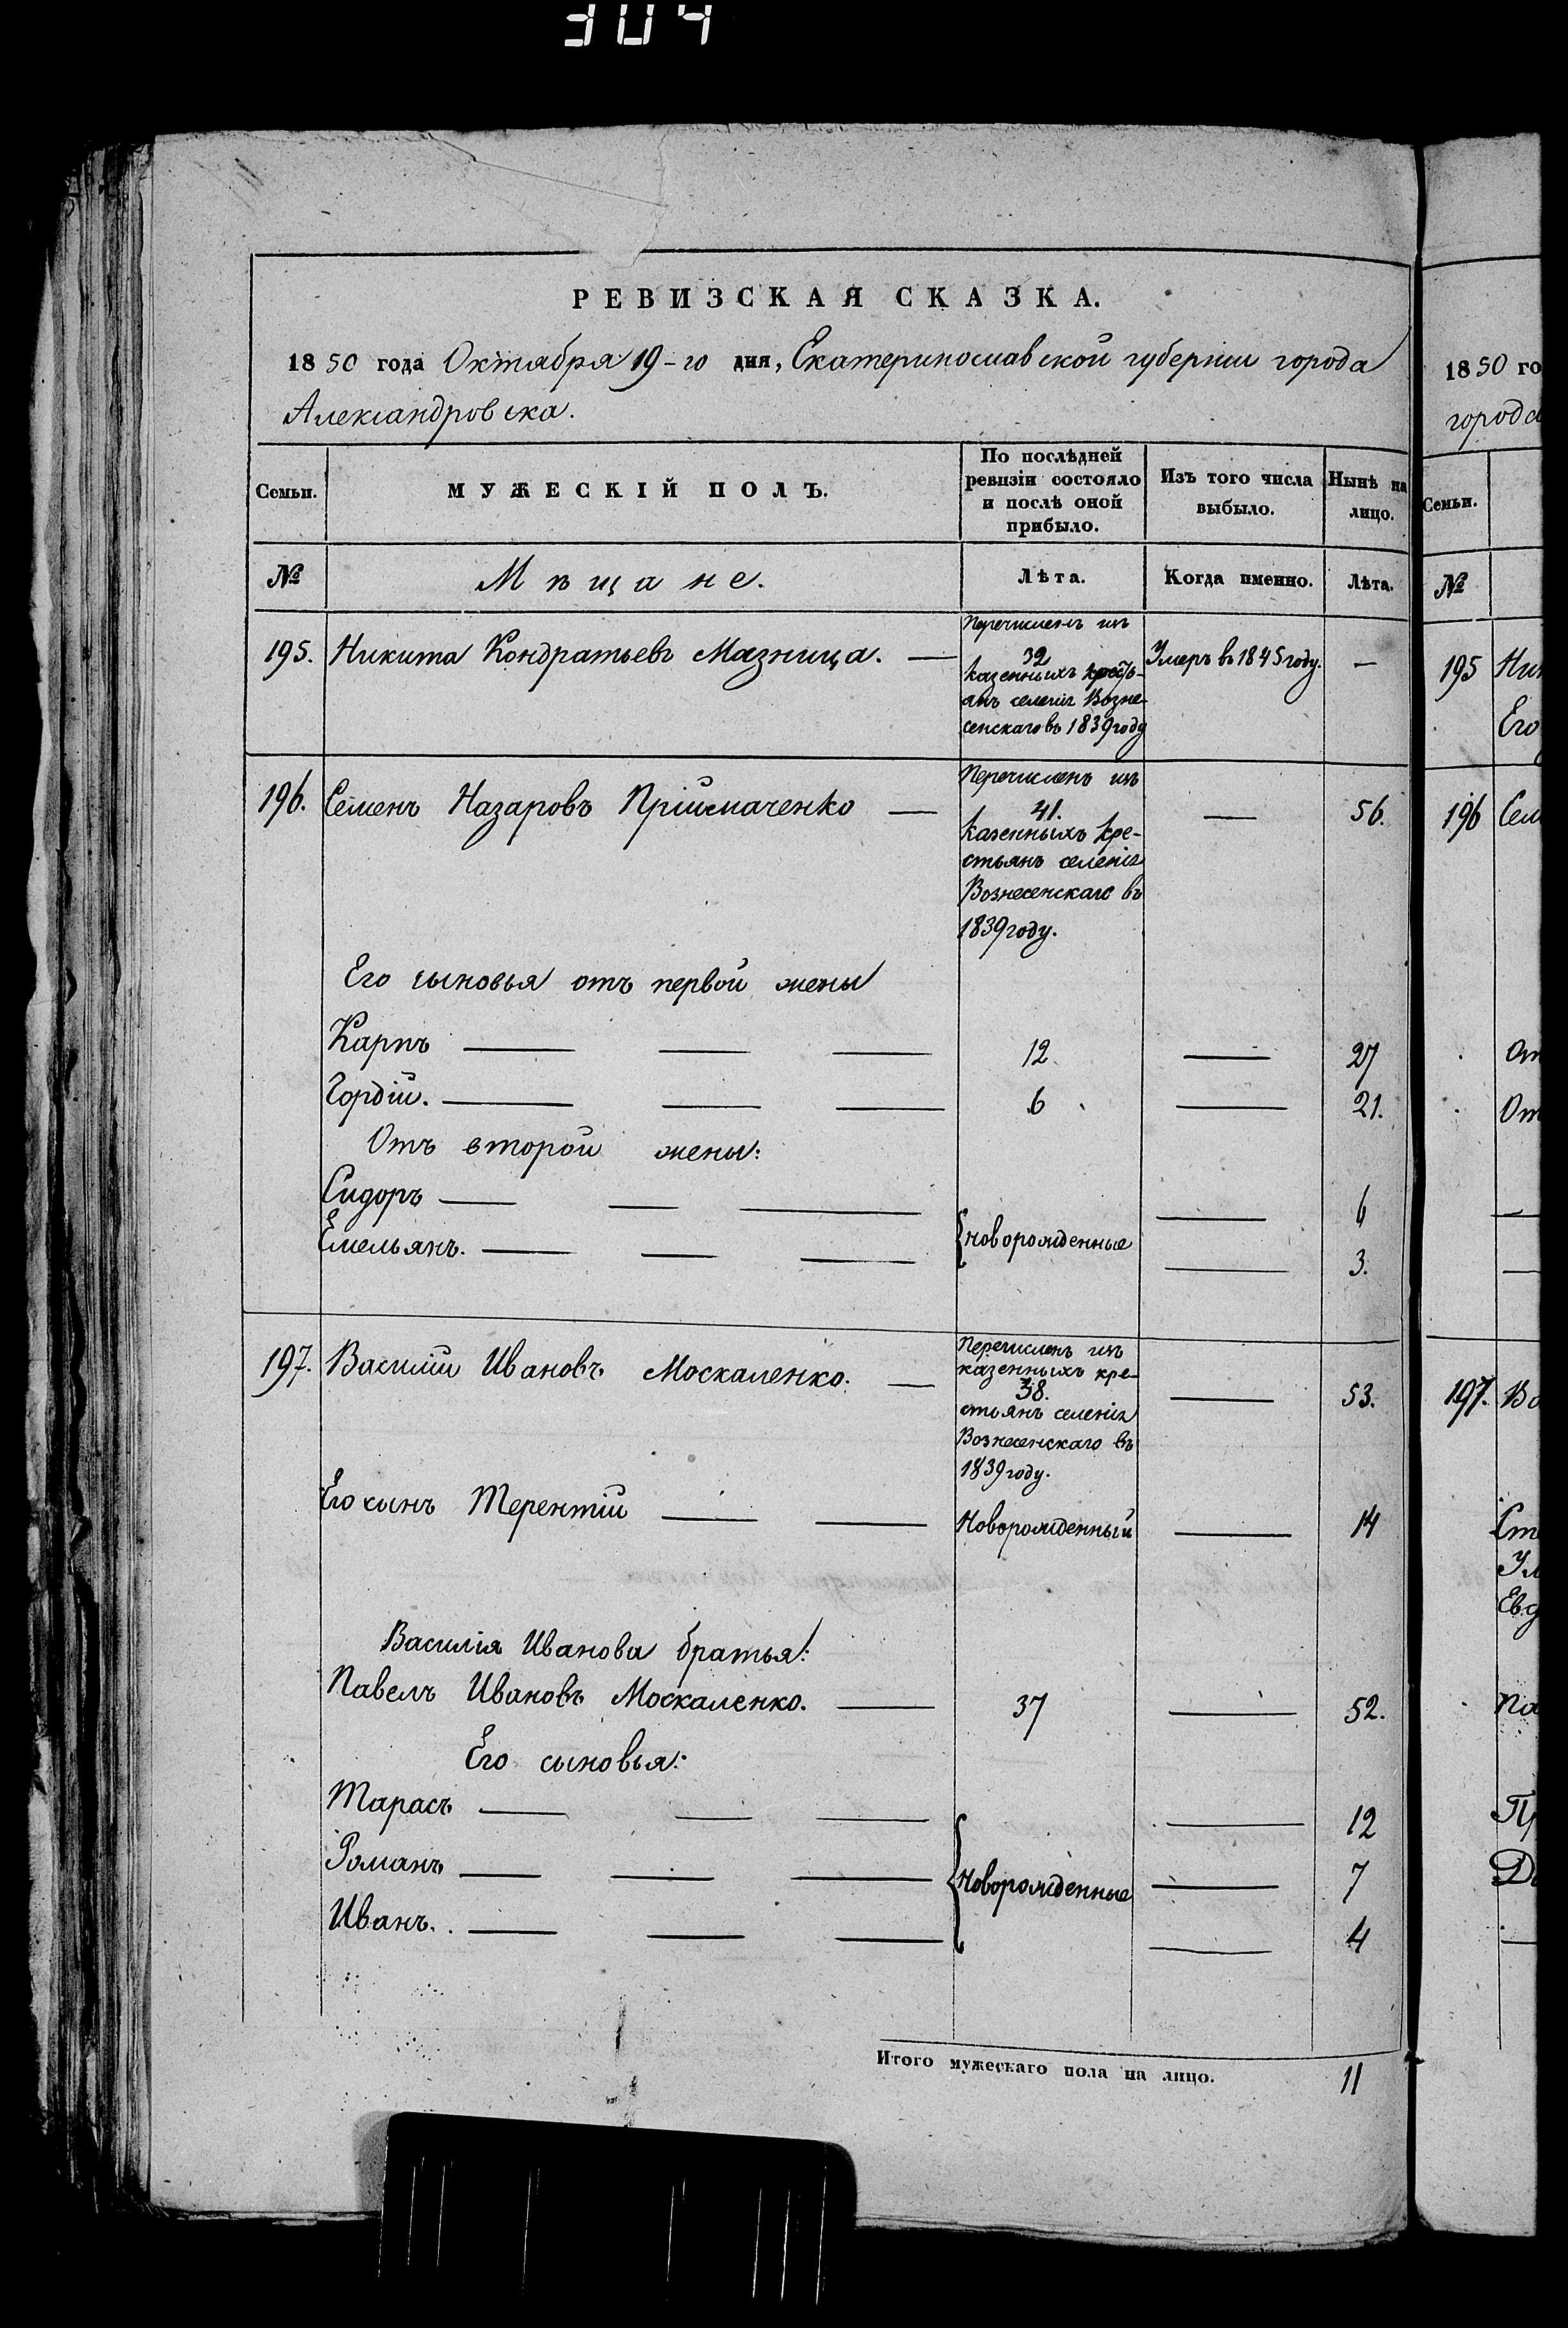 304
РЕВИЗСКАЯ СКАЗКА.
1850 года Октября 19-го дня, Екатеринославской губерніи города
Александровска.
Семьи.
МУЖЕСКІЙ ПОЛЪ.
По послѣдней
ревизіи состояло
и послѣ оной
прибыло.
Изъ того числа
выбыло.
Нынѣ на
лицо.
№
Мѣщане.
Лѣта.
Когда именно.
Лѣта.
195. Никита Кондратьевъ Мазница. —
Перечисленъ изъ
39
казенныхъ кресть-
янъ селенія Возне-
сенскаго въ 1839 году
Умеръ въ 1845 году. —
196. Семенъ Назаровъ Пріймаченко — — 56.
Перечисленъ изъ
41.
казенныхъ кре-
стьянъ селенія
Вознесенскаго въ
1839 году.
Его сыновья отъ первой жены
Карпъ — — — 12 — 27
Гордій. — — — 6 — 21.
Отъ второй жены:
Сидоръ — — — — 6
{новорожденные
Емельянъ. — — — — 3.
197. Василій Ивановъ Москаленко. — — 53.
Перечисленъ изъ
казенныхъ кре-
38.
стьянъ селенія
Вознесенскаго въ
1839 году.
Его сынъ Терентій — — Новорожденный — 14
Василія Иванова братья:
Павелъ Ивановъ Москаленко. — 37 — 52.
Его сыновья:
Тарасъ — — — — 12
Романъ — — — {Новорожденные — 7
Иванъ. — — — — 4
Итого мужескаго пола на лицо. 11
1850 го
города
Семьи.
№
195 Ни
Его
196 Сем
От
197. Ва
Ев
Па
Пр